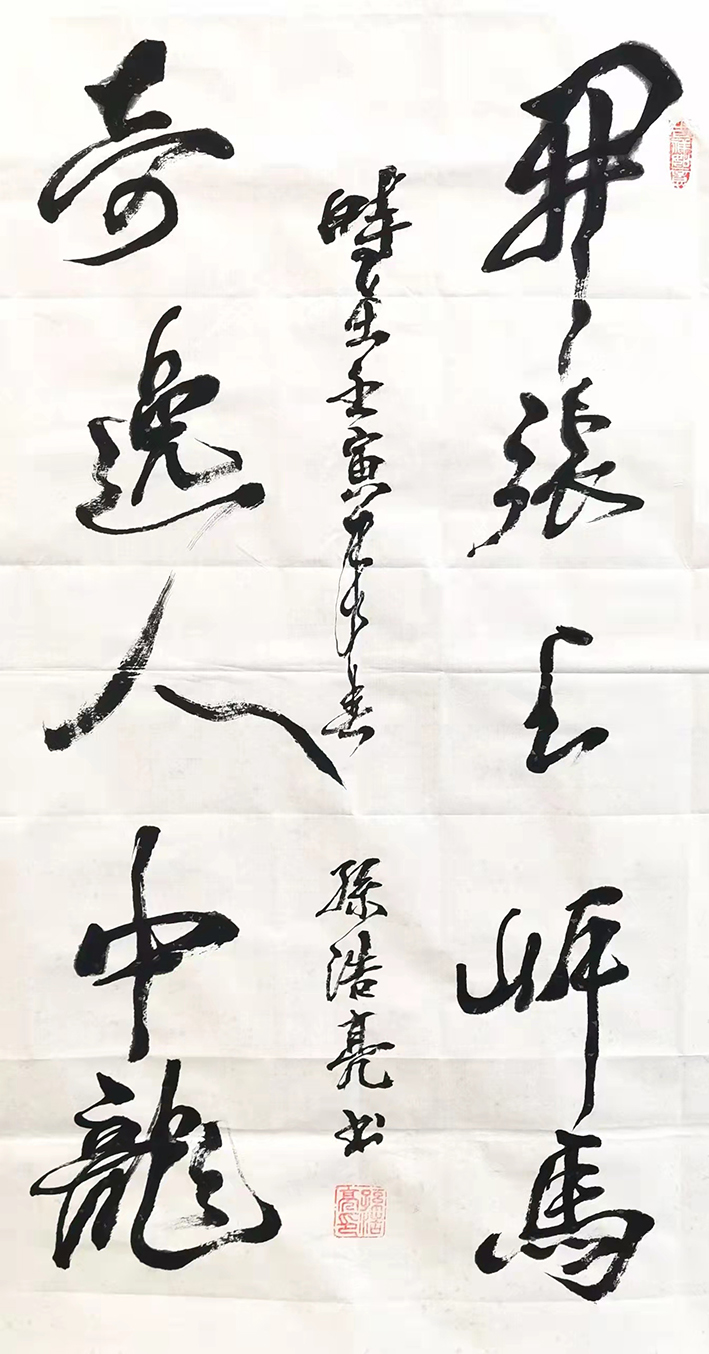 開張天岸馬
奇逸人中龍
時在壬寅年春
孫浩亮書
孫浩亮印